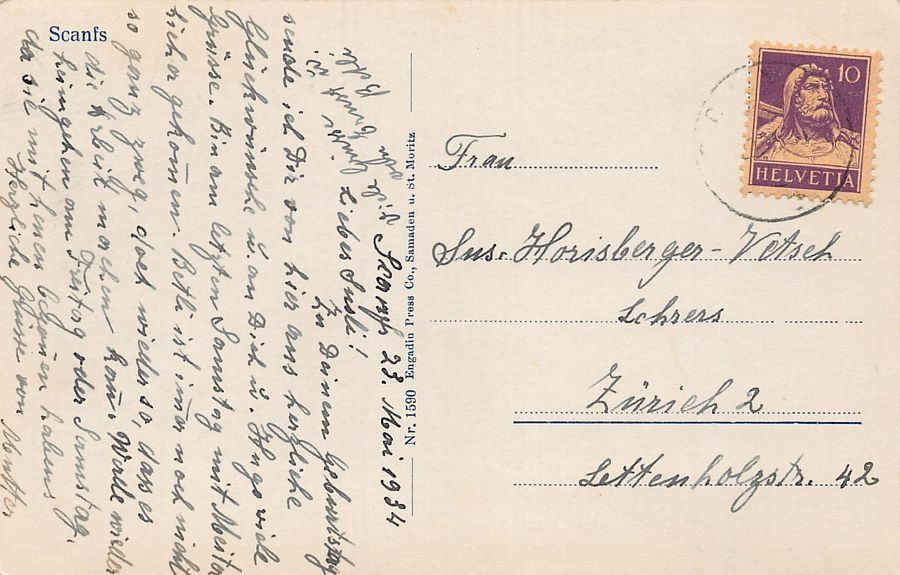 Scanfs
Skanfs 23. Mai 1934
Lieber Susli!
Zu Deinem Geburtstag
sende ich Dir von hier aus herzliche
Glückwünsche u. an Dich u. Hugo viele
Grüsse. Bin am letzten Samstag mit
hierher gekommen. Betli ist immer noch nicht
so ganz zweg, doch wieder so, das es
die Arbeit machen kann. Werde wieder
heimgehen am Freitag oder Samstag,
da sie mit heuen haben
Herzliche Grüsse von
Mutter
Nr. 1590 Engadin Press Co., Samaden u. St. Moritz
10
HELVETIA
Frau
Sus. Horisberger-Vetsch
Zürich 2
Lettenholzstr. 42